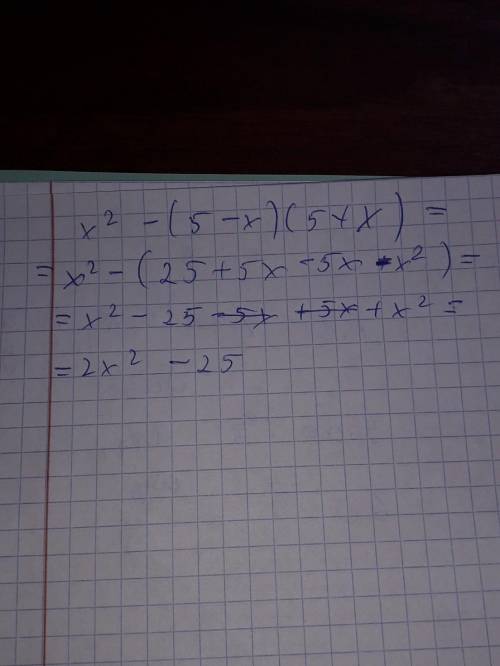 x² - (5 - x)(5 + x) =
= x² - (25 + 5x - 5x - x²) =
= x² - 25 - 5x + 5x + x² =
= 2x² - 25